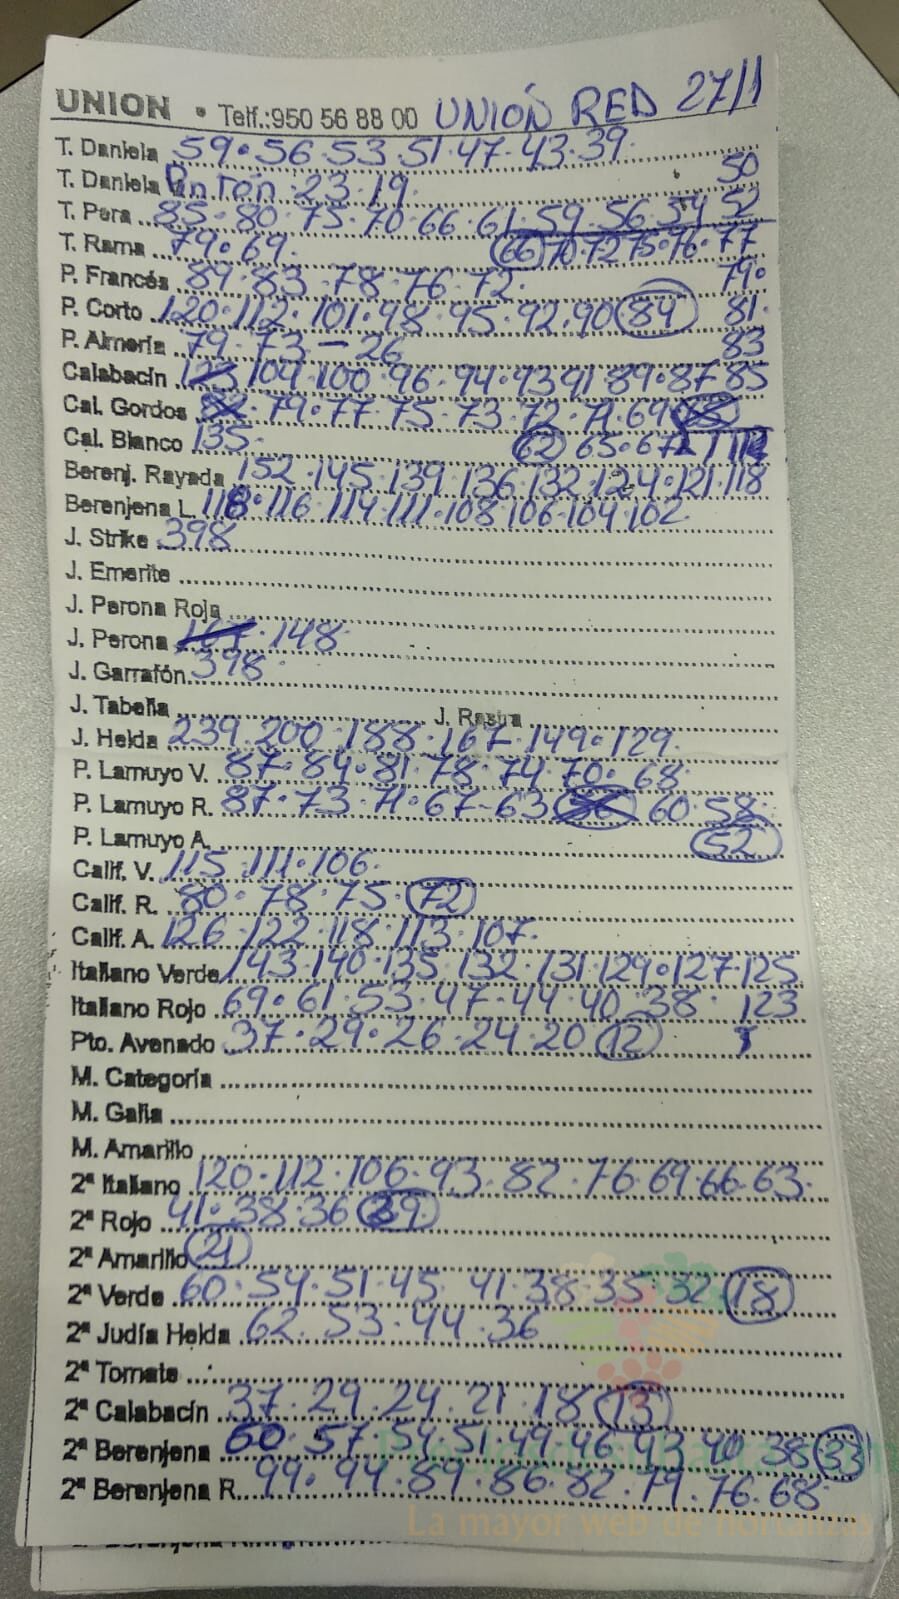 UNION • Telf.:950 56 88 00 UNIÓN RED 27/1
T. Daniela 59·56·53·51·47·43·39·
50
T. Daniela Pintón·23·19·
T. Pera 85·80·75·70·66·61·59·56·54 52
T. Rama 79·69· 66 70·72 75·76·77
P. Francés 89·83·78·76·72· 79·
P. Corto 120·112·101·98·95·92·90 84 81·
P. Almería 79·73–26 83
Calabacín 123 104·100·96·94·93 91 89·87 85
Cal. Gordos 82·79·77·75·73·72·71·69 68
Cal. Blanco 135· 62 65·67
Berenj. Rayada 152·145·139·136·132·124·121·118
Berenjena L. 118·116·114·111·108·106·104·102
J. Strike 398
J. Emerite
J. Perona Roja
J. Perona 167·148·
J. Garrafón 398·
J. Tabella J. Rastra
J. Helda 239·200·188·167·149·129·
P. Lamuyo V. 87·84·81·78·74·70·68·
P. Lamuyo R. 87·73·71·67·63 56 60·58·
P. Lamuyo A. 52
Calif. V. 115·111·106·
Calif. R. 80·78·75·72
Calif. A. 126·122·118·113·107·
Italiano Verde 143·140·135·132·131·129·127·125
Italiano Rojo 69·61·53·47·44·40·38· 123
Pto. Avenado 37·29·26·24·20 12
M. Categoría
M. Galia
M. Amarillo
2ª Italiano 120·112·106·93·82·76·69·66·63·
2ª Rojo 41·38·36 39
2ª Amarillo 21
2ª Verde 60·54·51·45·41·38·35·32 18
2ª Judía Helda 62·53·44·36
2ª Tomate
2ª Calabacín 37·29·24·21·18 13
2ª Berenjena 60·57·54·51·49·46·43·40·38 33
2ª Berenjena R. 99·94·89·86·82·79·76·68·
La mayor web de hortalizas